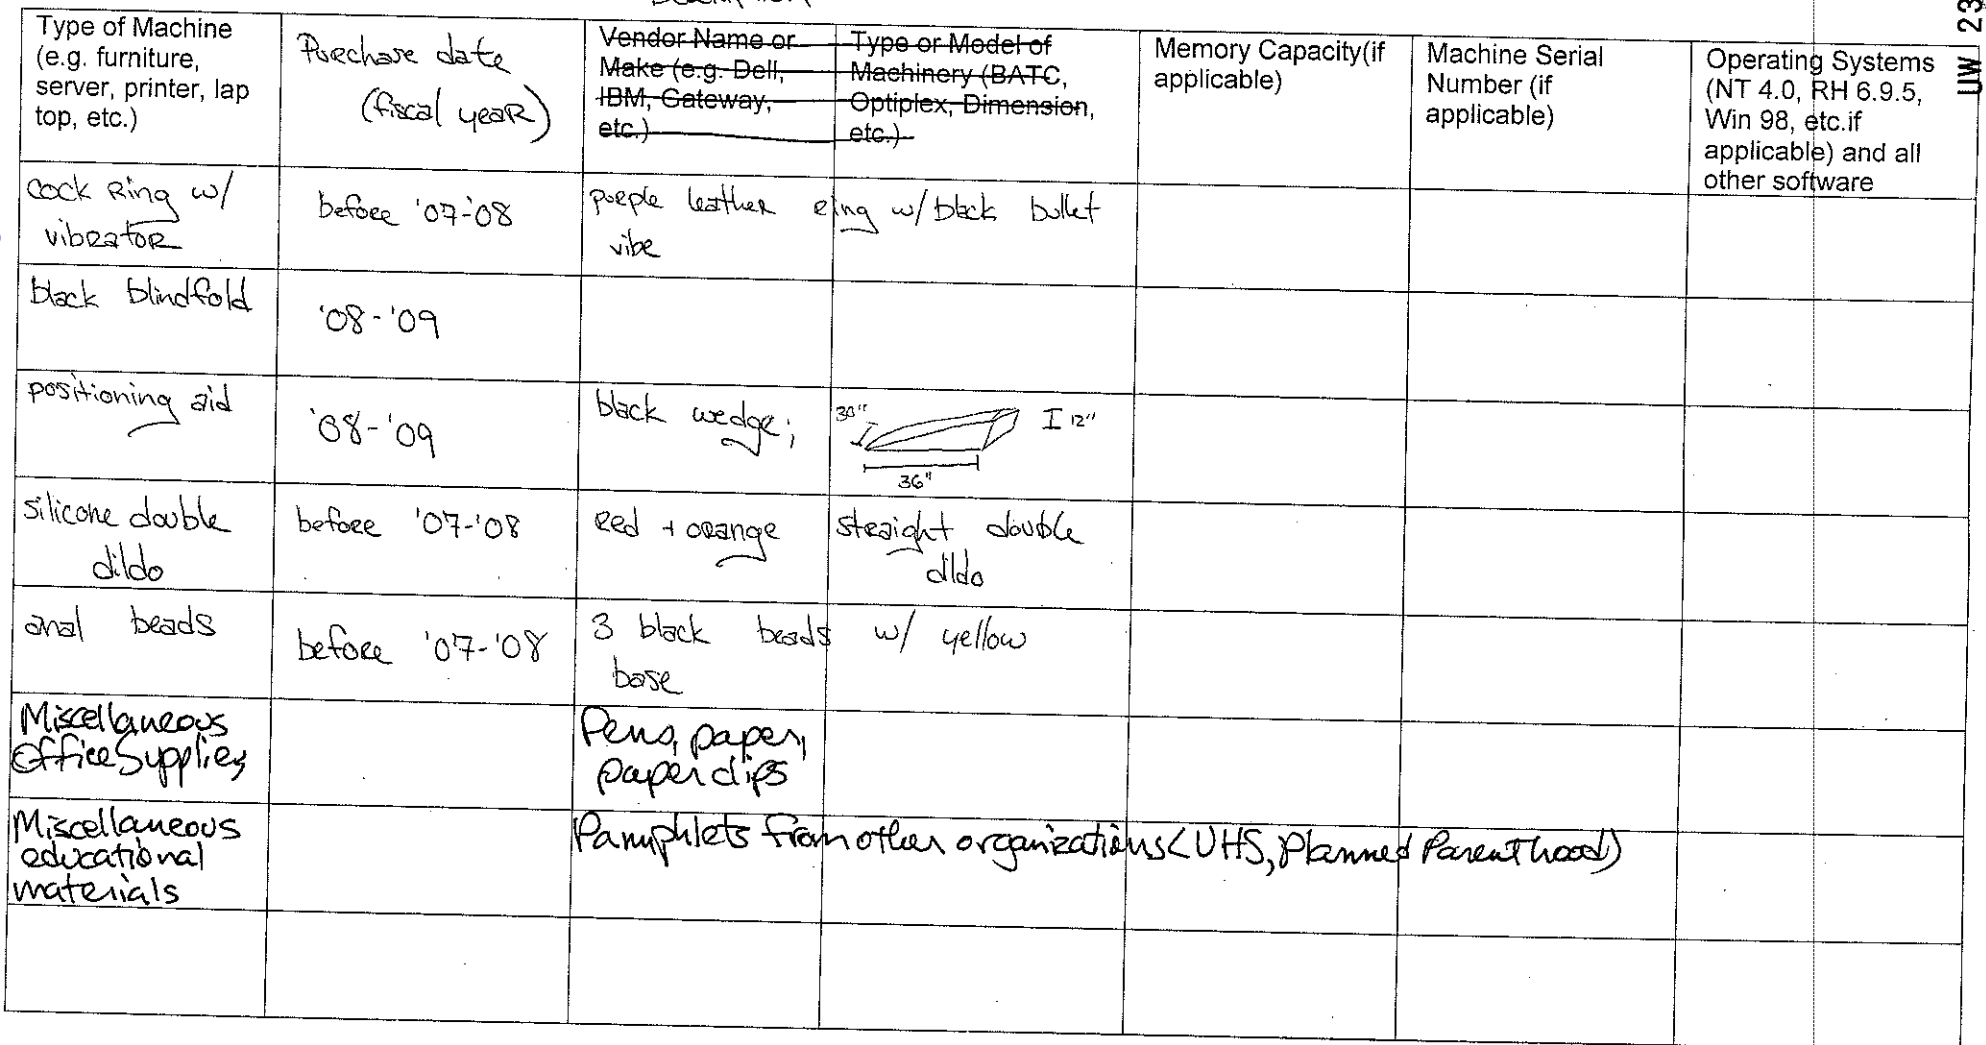 Description
UW 23
Type of Machine
(e.g. furniture,
server, printer, lap
top, etc.)
Purchase date
(fiscal year)
Vendor Name or
Make (e.g. Dell,
IBM, Gateway,
etc.)
Type or Model of
Machinery (BATC,
Optiplex, Dimension,
etc.)
Memory Capacity(if
applicable)
Machine Serial
Number (if
applicable)
Operating Systems
(NT 4.0, RH 6.9.5,
Win 98, etc.if
applicable) and all
other software
cock ring w/
vibrator
before '07-'08
purple leather ring w/ black bullet
vibe
black blindfold
'08-'09
positioning aid
'08-'09
black wedge;
30"
I 12"
36"
silicone double
dildo
before '07-'08
red + orange
straight double
dildo
anal beads
before '07-'08
3 black beads w/ yellow
base
Miscellaneous
Office Supplies
Pens, paper,
paper clips
Miscellaneous
educational
materials
Pamphlets from other organizations (UHS, Planned Parenthood)